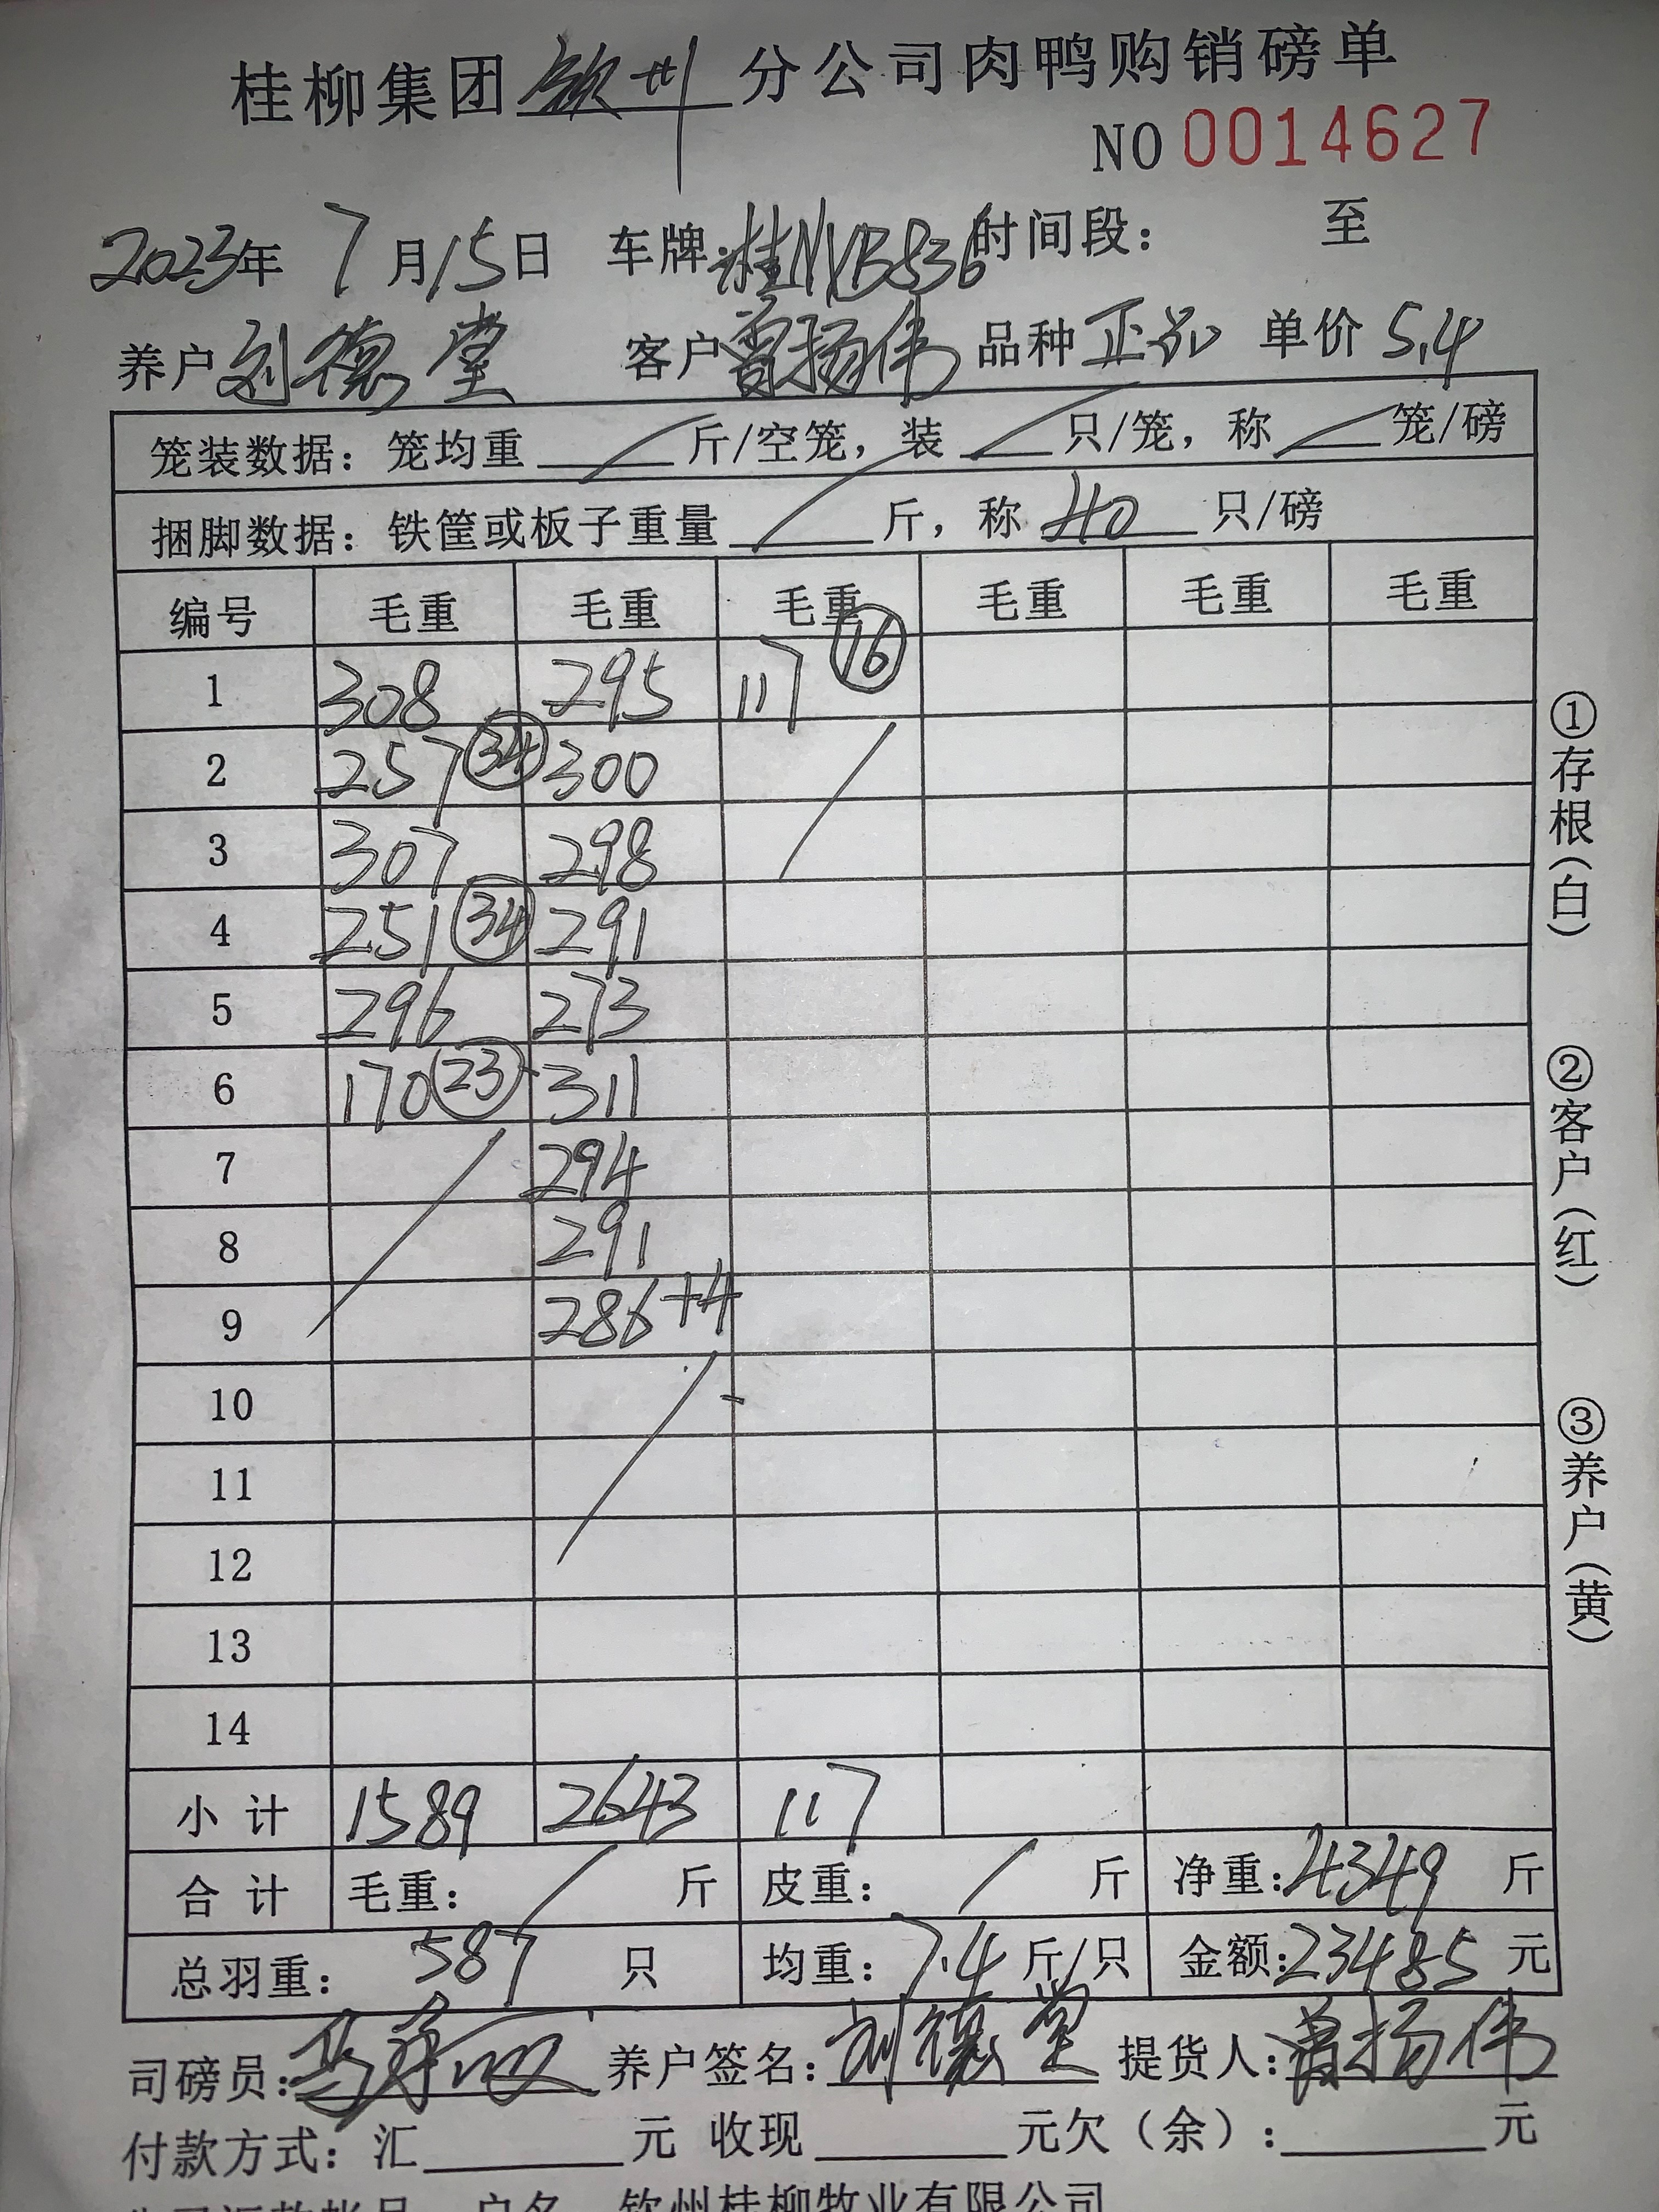 桂柳集团钦州分公司肉鸭购销磅单
NO 0014627
2023年 7月15日 车牌:桂NXB836 时间段: 至
养户 刘德堂 客户 曾扬伟 品种 正品 单价 5.4
笼装数据:笼均重 / 斤/空笼,装 / 只/笼,称 / 笼/磅
捆脚数据:铁筐或板子重量 / 斤,称 40 只/磅
编号 毛重 毛重 毛重 毛重 毛重 毛重
1 308 295 117 ⑯
2 257 ㉞ 300
3 307 298
4 251 ㉞ 291
5 296 273
6 170 ㉓ 311
7 294
8 291
9 286+4
10
11
12
13
14
小计 1589 2643 117
合计 毛重: / 斤 皮重: / 斤 净重:4349 斤
总羽重: 587 只 均重:7.4 斤/只 金额:23485 元
司磅员: 养户签名:刘德堂 提货人:曾扬伟
付款方式:汇 元 收现 元欠(余): 元
户名 钦州桂柳牧业有限公司
①存根(白)
②客户(红)
③养户(黄)